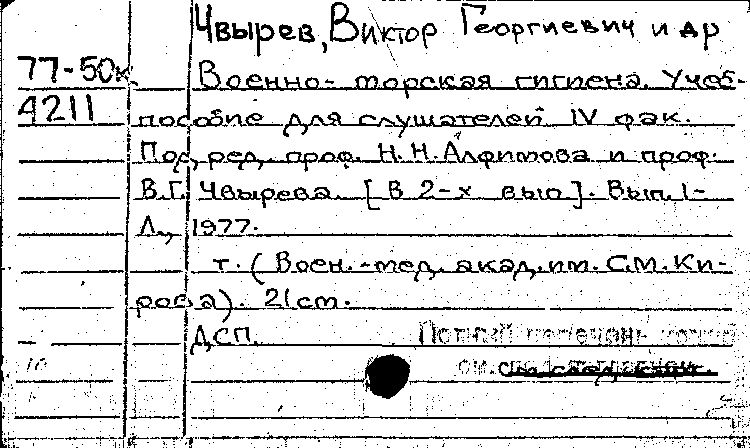 Чвырев, Виктор Георгиевич и др
77-50к Военно-морская гигиена. Учеб-
4211 пособие для слушателей IV фак.
Под ред. проф. Н.Н. Алфимова и проф.
В.Г. Чвырева. [В 2-х вып]. Вып. 1-
Л., 1977.
т. (Воен.-мед. акад. им. С.М. Ки-
рова). 21 cm.
ДСП.
Полный перечень
см.